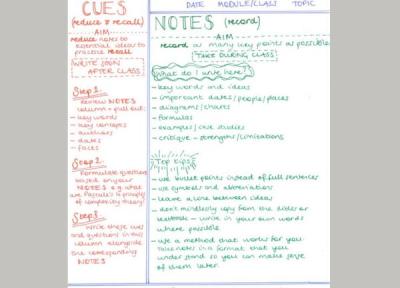 DATE MODULE/CLASS TOPIC
CUES
(reduce & recall)
AIM
reduce notes to
essential ideas to
practice recall.
WRITE SOON
AFTER CLASS
Step 1
Review NOTES
column + pull out:
- key words
- key concepts
- authors
- dates
- facts
Step 2
Formulate questions
based on your
NOTES e.g. what
are Pascale's principles
of complexity theory?
Step 3
Write these cues
and questions in this
column alongside
the corresponding
NOTES
NOTES (record)
AIM
record as many key points as possible
TAKE DURING CLASS
What do I write here?
- key words and ideas
- important dates/people/places
- diagrams/charts
- formulas
- examples/case studies
- critique - strengths/limitations
Top tips
- use bullet points instead of full sentences
- use symbols and abbreviations
- leave a line between ideas
- don't mindlessly copy from the slides or
textbook - write in your own words
where possible
- use a method that works for you.
Take notes in a format that you
understand so you can make sense
of them later.